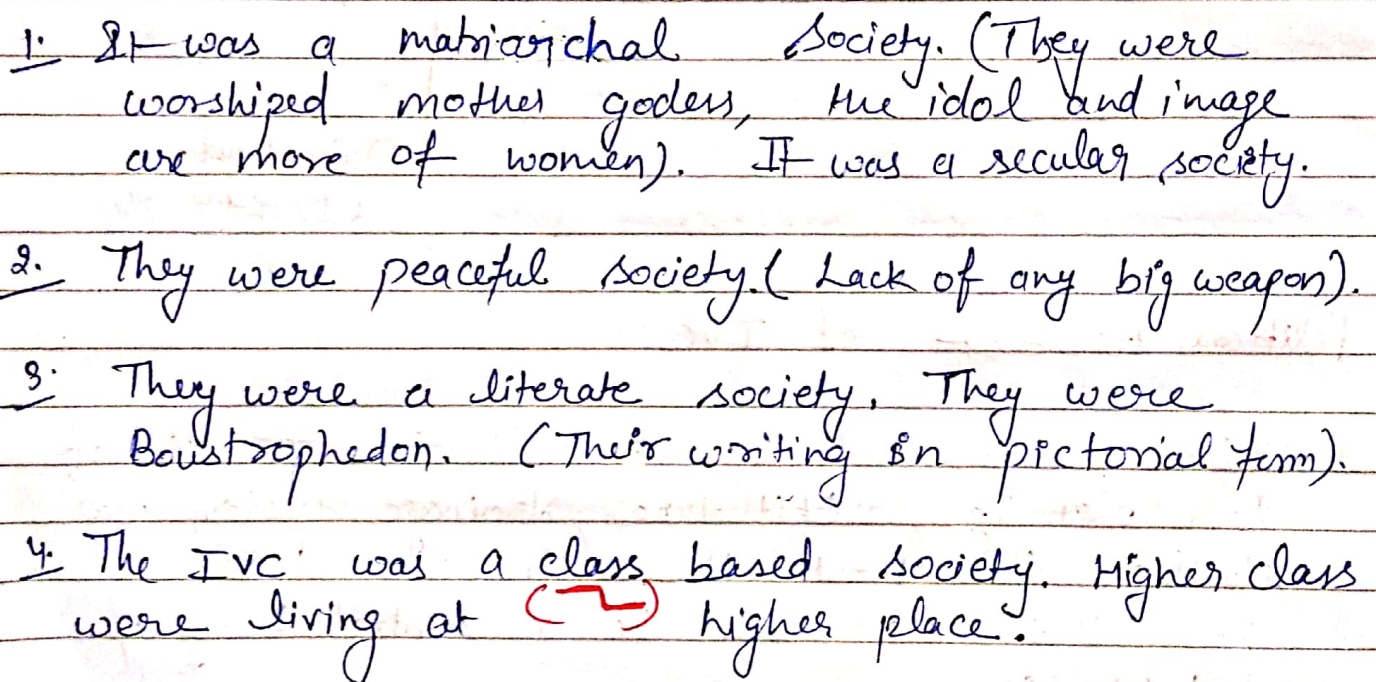 1. It was a matriarchal society. (They were
worshiped mother godess, the idol and image
are more of women). It was a secular society.
2. They were peaceful society. (Lack of any big weapon).
3. They were a literate society. They were
Boustrophedon. (Their writing in pictorial form).
4. The IVC was a class based society. Higher class
were living at higher place.